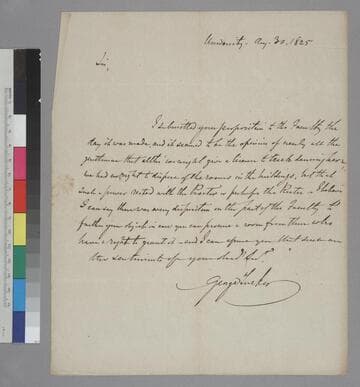 University. Aug. 30. 1825
Sir,
I submitted your proposition to the Faculty the
day it was made, and it seemed to be the opinion of nearly all the
gentlemen that altho' we might give a license to teach dancing here
we had no right to dispose of the rooms in the buildings, but that
such a power rested with the Proctor or perhaps the Rector. I believe
I can say there was every disposition on the part of the Faculty to
further your object in case you can procure a room from those who
have a right to grant it and I can assure you that such are
the sentiments of your obed. Sert.
George Tucker